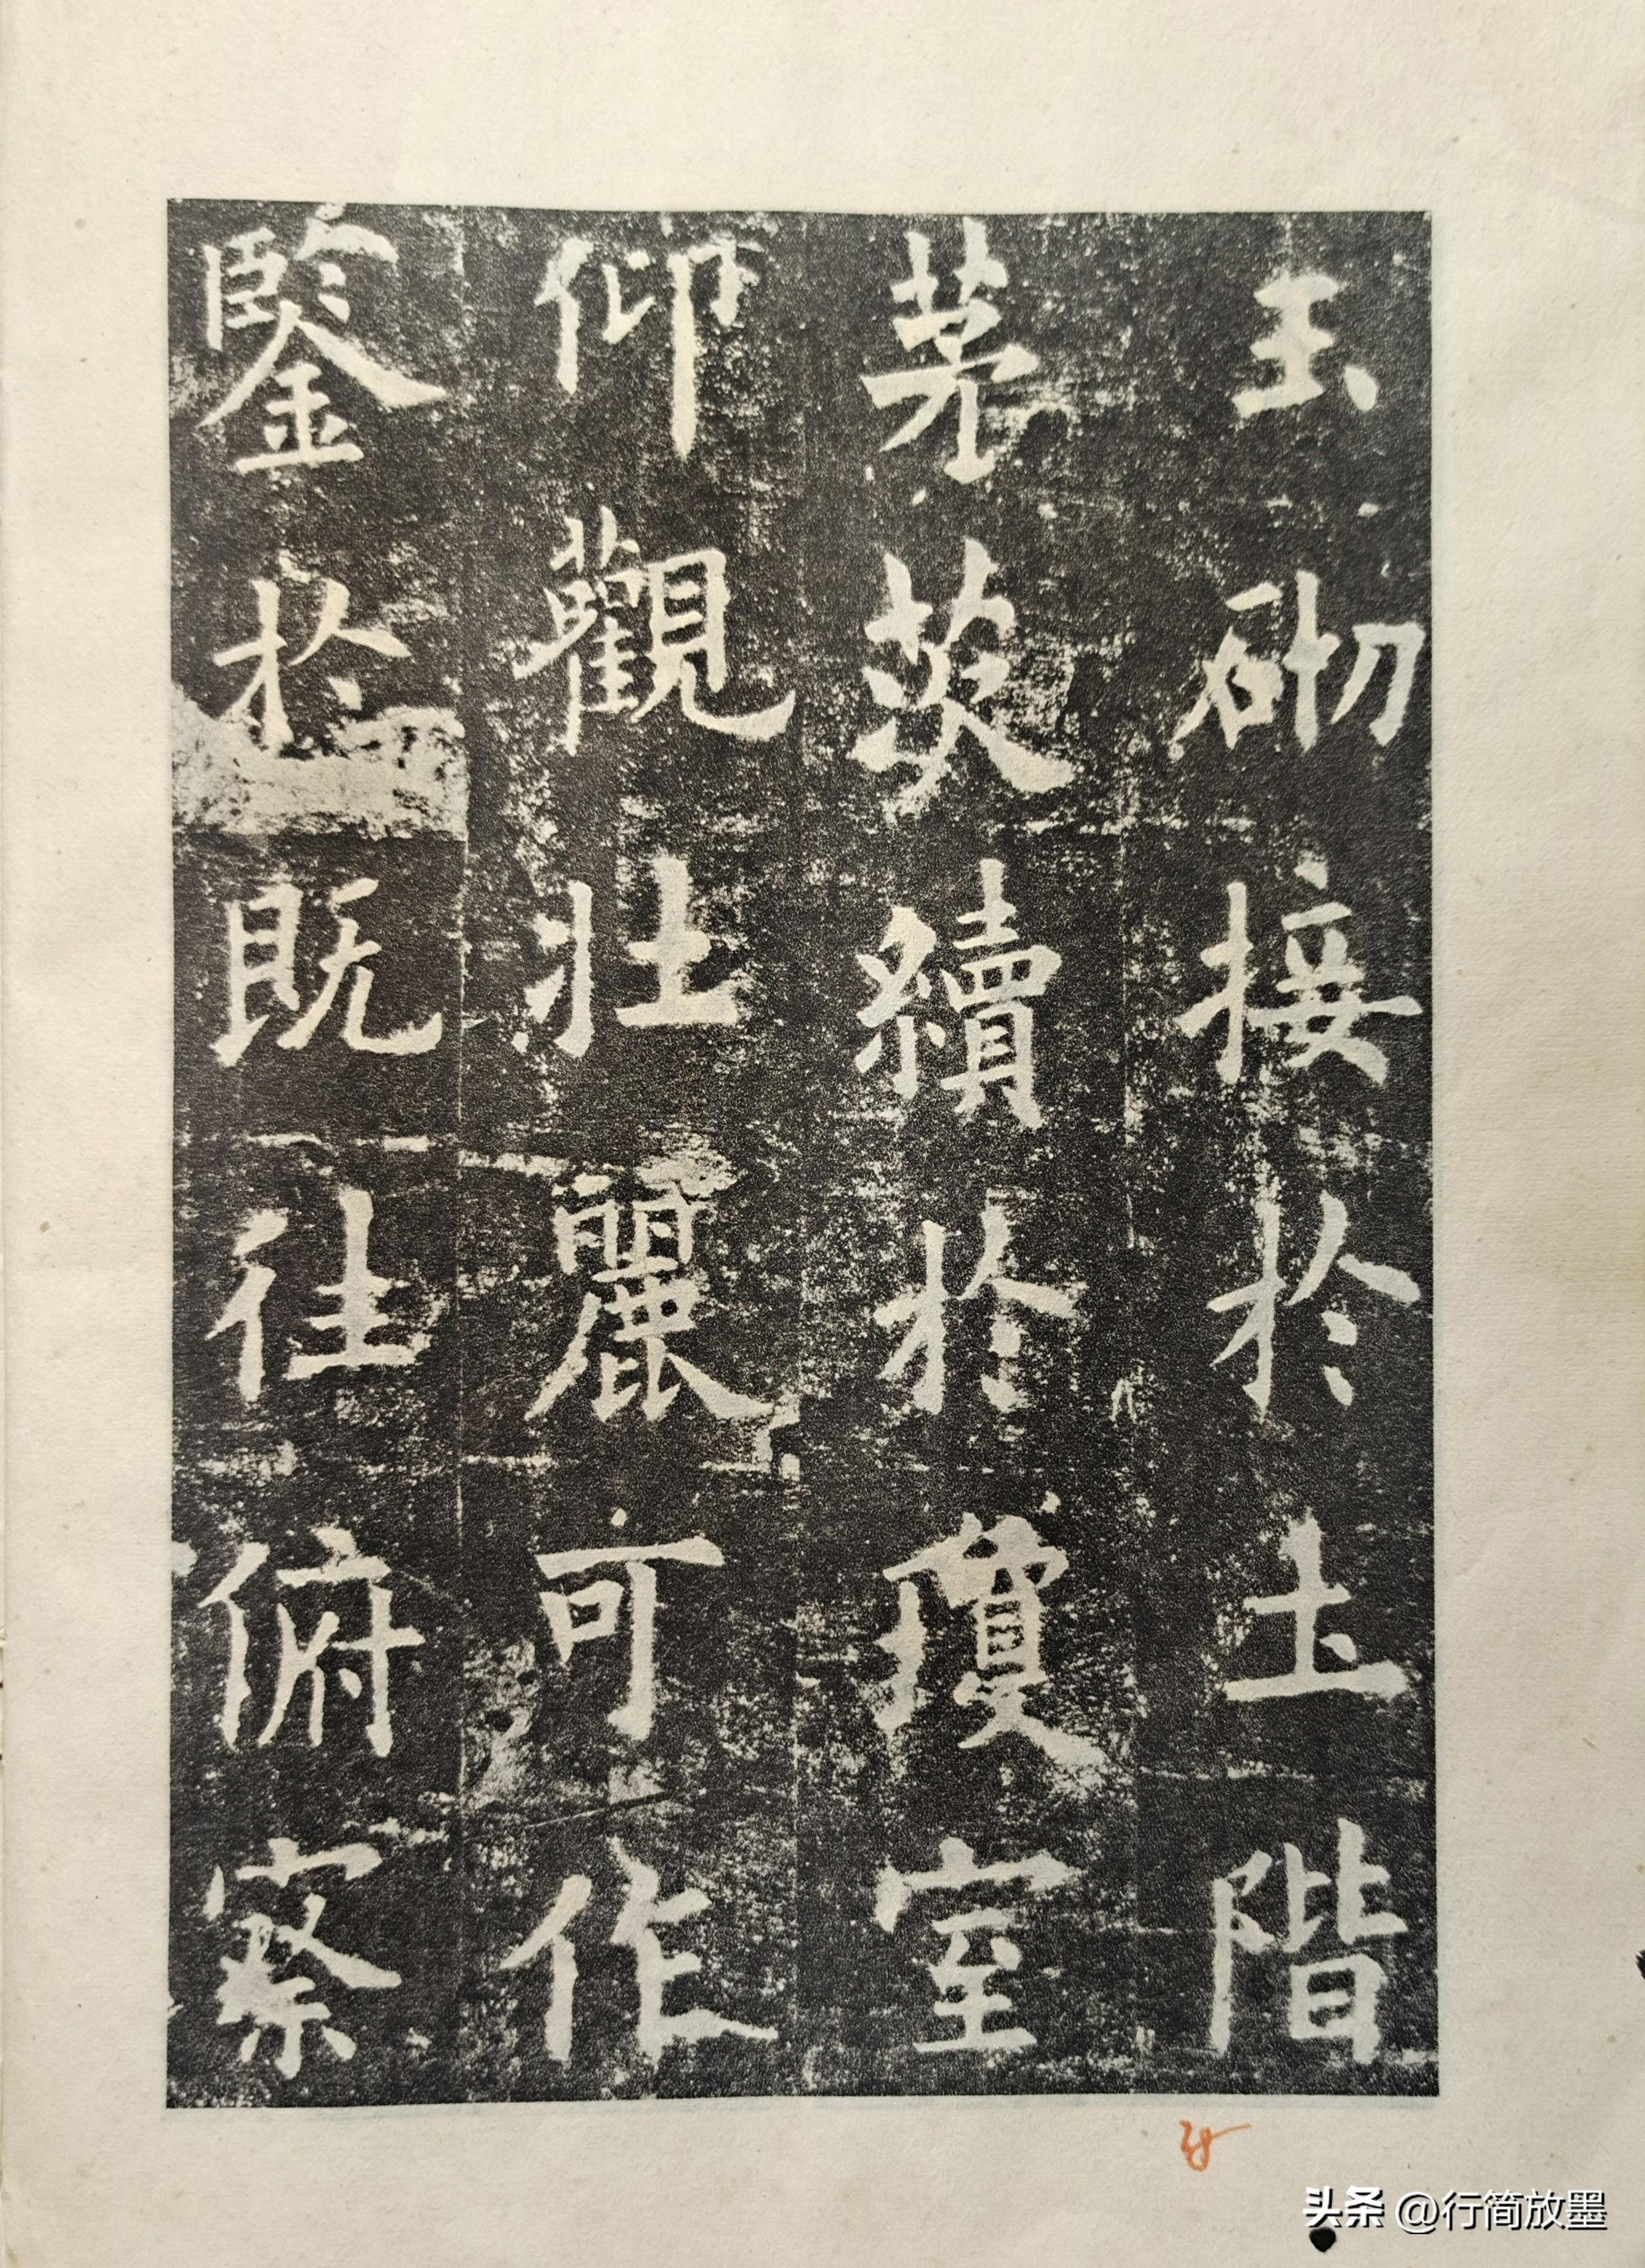 玉砌接於土階
茅茨續於瓊室
仰觀壮麗可作
鍳於既往俯察
头条 @行简放墨